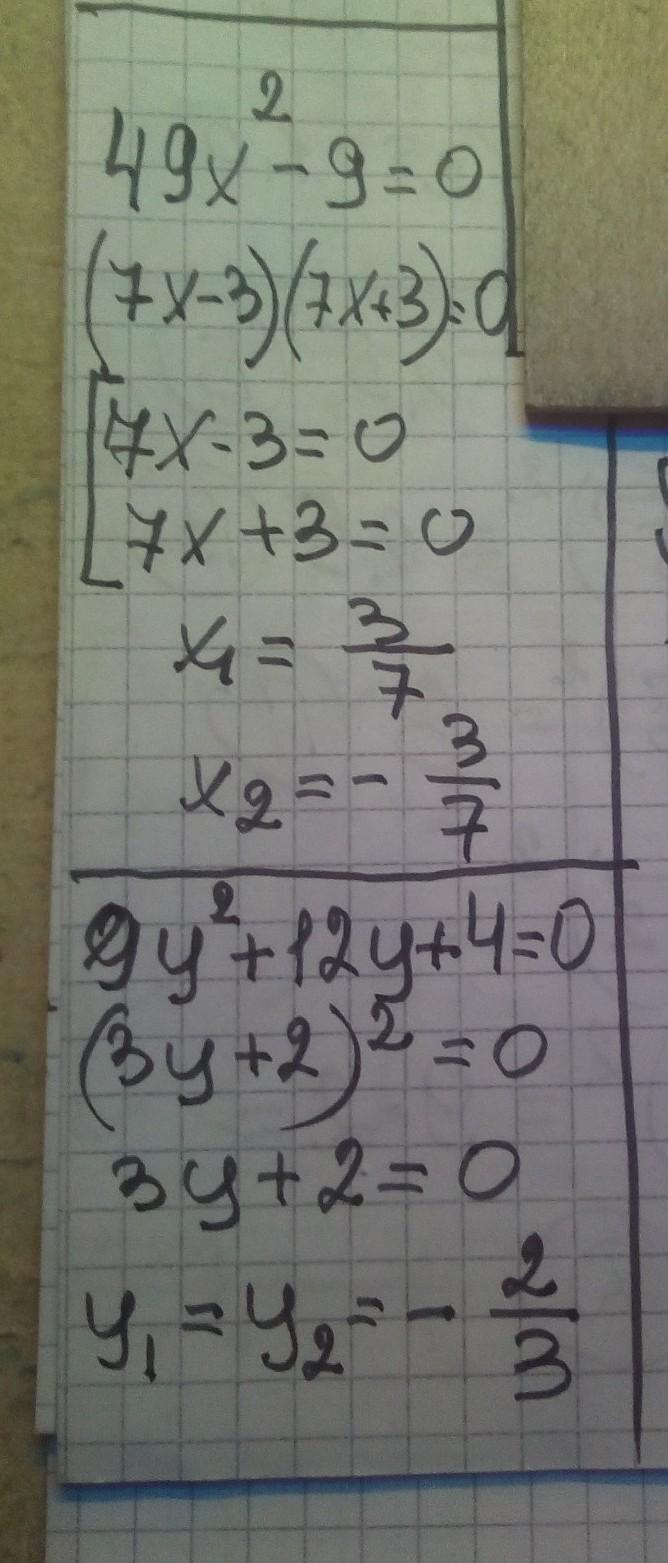 49x² - 9 = 0
(7x-3)(7x+3)=0
[7x-3=0
7x+3=0
x₁ = 3/7
x₂ = - 3/7
9y²+12y+4=0
(3y+2)² = 0
3y+2=0
y₁ = y₂ = - 2/3